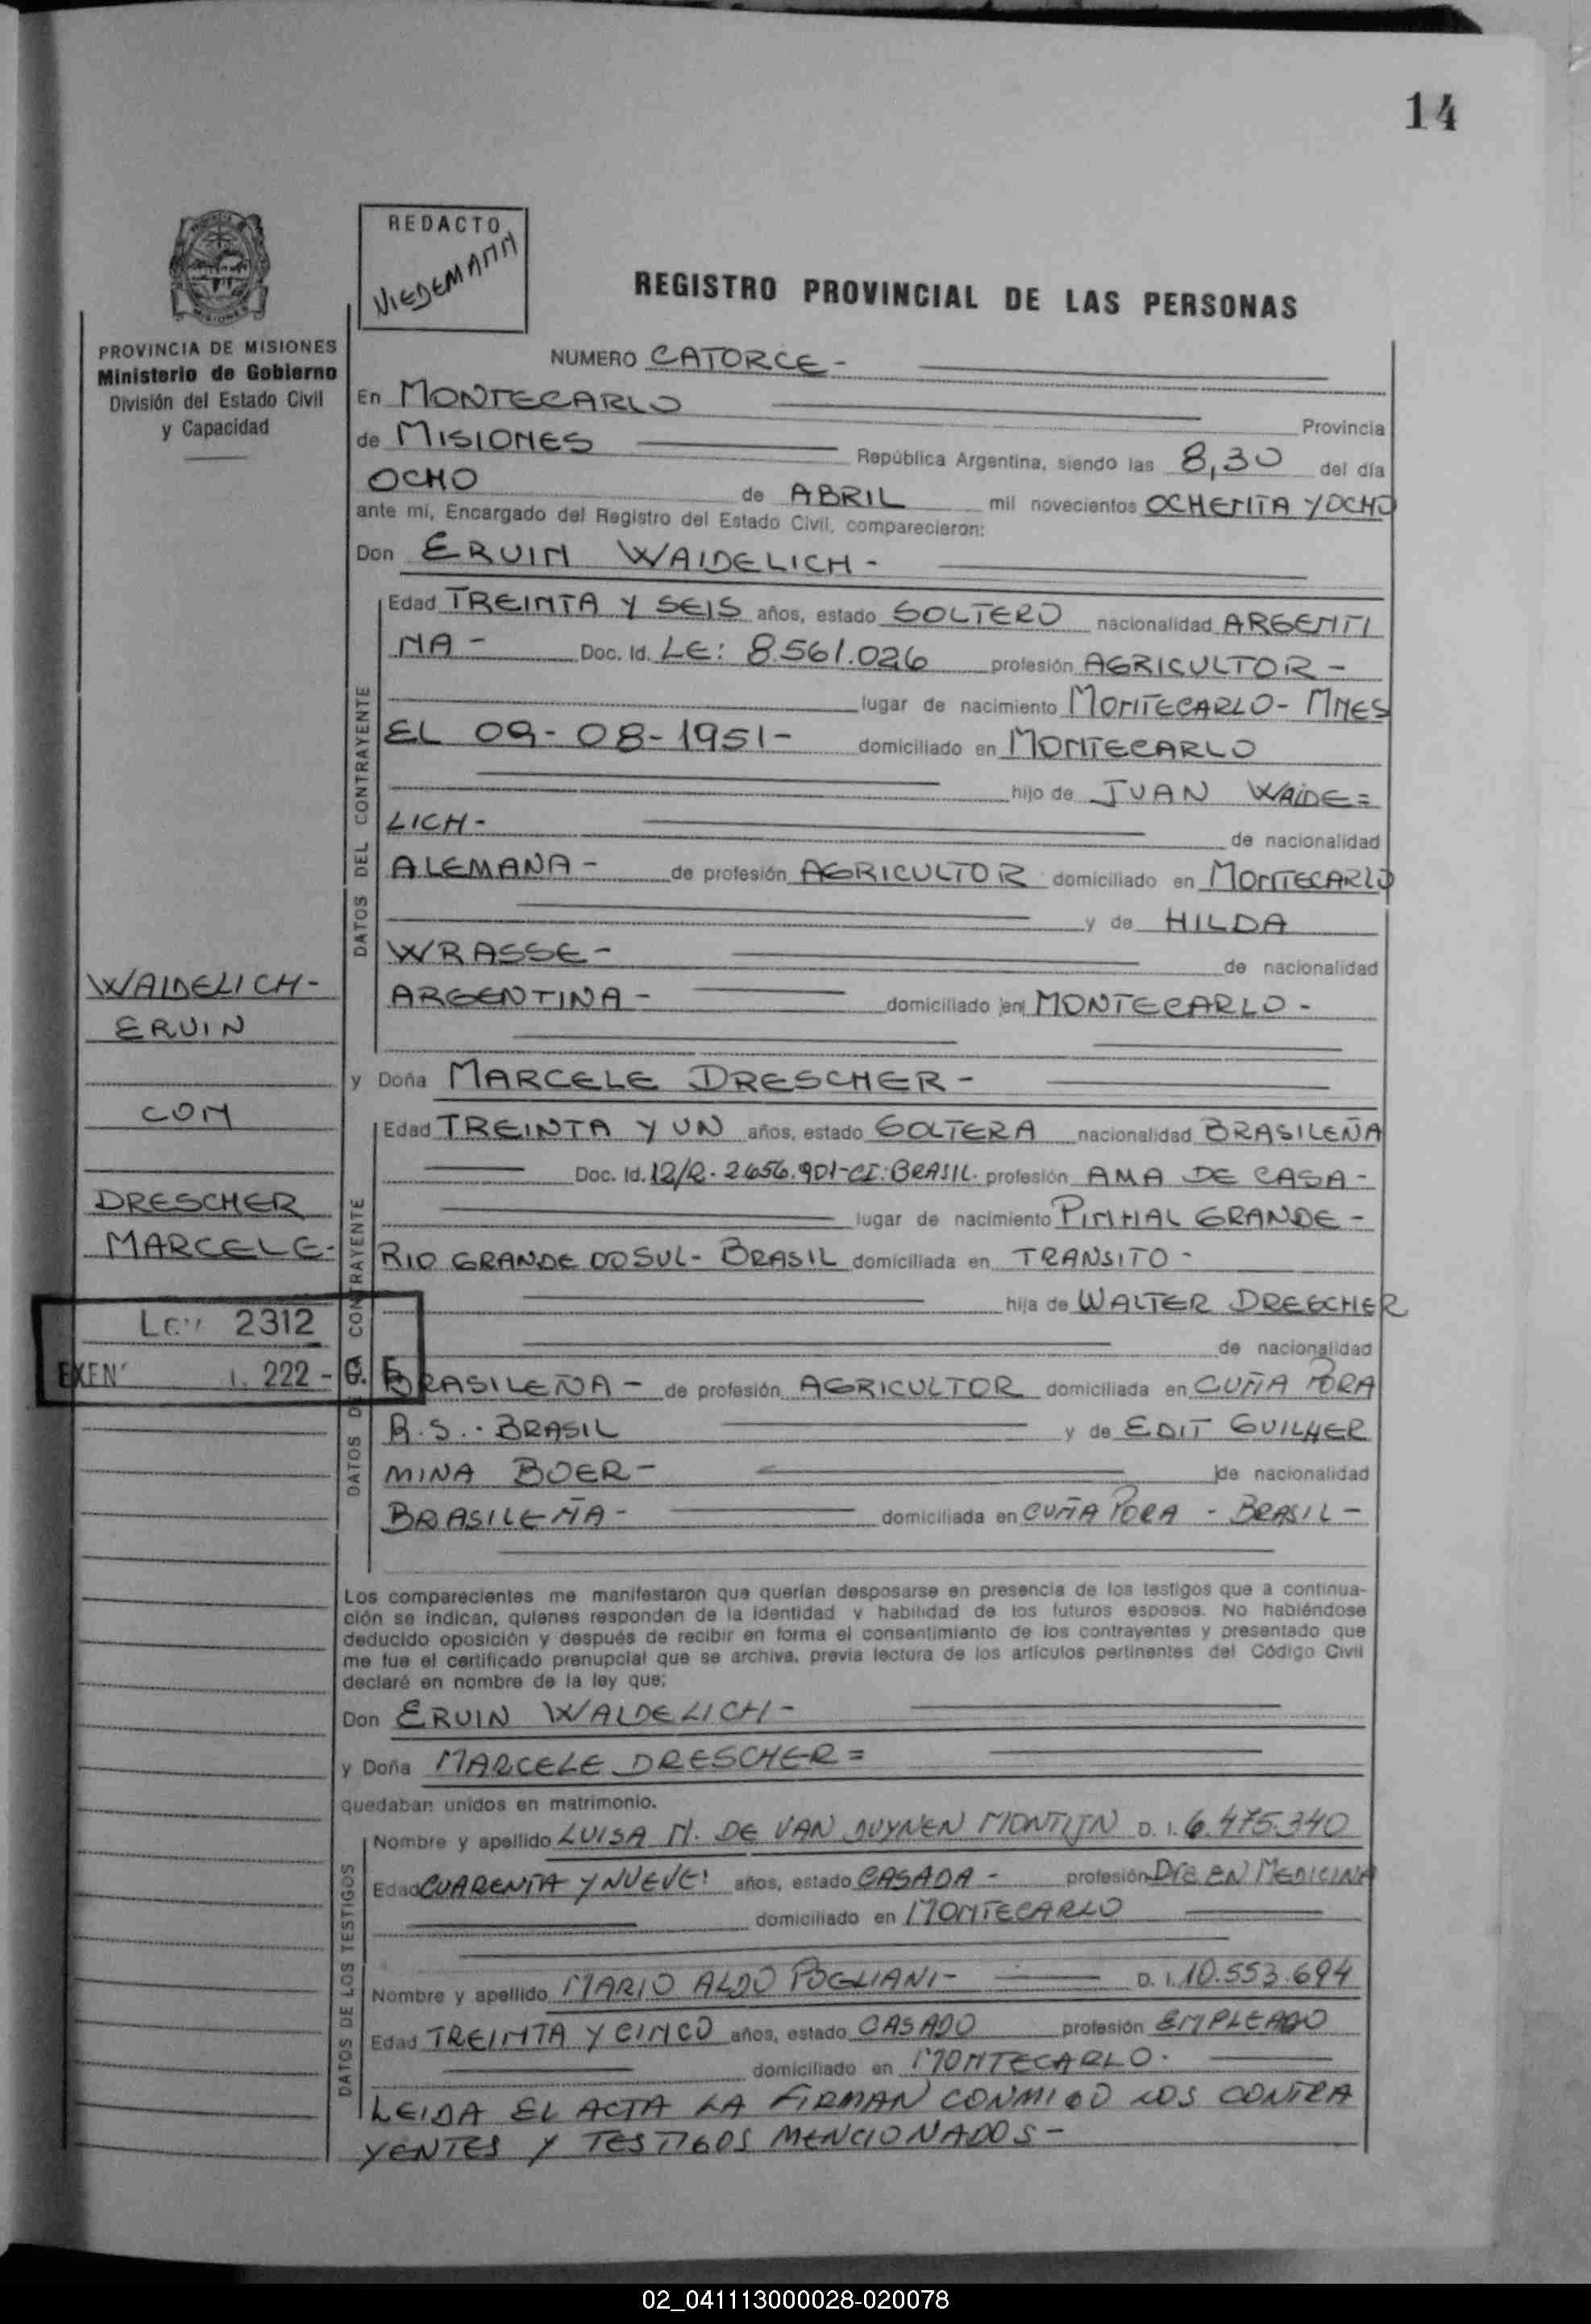 14
REDACTO
VIEDEMANN
REGISTRO PROVINCIAL DE LAS PERSONAS
PROVINCIA DE MISIONES
Ministerio de Gobierno
División del Estado Civil
y Capacidad
NUMERO CATORCE -
En MONTECARLO
Provincia
de MISIONES República Argentina, siendo las 8,30 del día
OCHO de ABRIL mil novecientos OCHENTA Y OCHO
ante mi, Encargado del Registro del Estado Civil, comparecieron:
Don ERVIN WAIDELICH -
DATOS DEL CONTRAYENTE
Edad TREINTA Y SEIS años, estado SOLTERO nacionalidad ARGENTI
NA - Doc. Id. LE: 8.561.026 profesión AGRICULTOR -
lugar de nacimiento MONTECARLO - MNES
EL 09-08-1951- domiciliado en MONTECARLO
hijo de JUAN WAIDE=
LICH - de nacionalidad
ALEMANA - de profesión AGRICULTOR domiciliado en MONTECARLO
y de HILDA
WRASSE - de nacionalidad
ARGENTINA - domiciliado en MONTECARLO -
WAIDELICH -
ERVIN
CON
DRESCHER
MARCELE -
Ley 2312
EXEN 222 - G.
y Doña MARCELE DRESCHER -
DATOS DE LA CONTRAYENTE
Edad TREINTA Y UN años, estado SOLTERA nacionalidad BRASILEÑA
Doc. Id. 12/R. 2.656.901-CI: BRASIL. profesión AMA DE CASA -
lugar de nacimiento PINHAL GRANDE -
RIO GRANDE DO SUL - BRASIL domiciliada en TRANSITO -
hija de WALTER DRESCHER
de nacionalidad
BRASILEÑA - de profesión AGRICULTOR domiciliada en CUÑA PORA
R.S. - BRASIL y de EDIT GUILHER
MINA BOER - de nacionalidad
BRASILEÑA - domiciliada en CUÑA PORA - BRASIL -
Los comparecientes me manifestaron que querían desposarse en presencia de los testigos que a continua-
ción se indican, quienes responden de la identidad y habilidad de los futuros esposos. No habiéndose
deducido oposición y después de recibir en forma el consentimiento de los contrayentes y presentado que
me fue el certificado prenupcial que se archiva, previa lectura de los artículos pertinentes del Código Civil
declaré en nombre de la ley que:
Don ERVIN WAIDELICH -
y Doña MARCELE DRESCHER =
quedaban unidos en matrimonio.
DATOS DE LOS TESTIGOS
Nombre y apellido LUISA M. DE VAN DUYNEN MONTIJN D. I. 6.475.340
Edad CUARENTA Y NUEVE años, estado CASADA - profesión Dra EN MEDICINA
domiciliado en MONTECARLO
Nombre y apellido MARIO ALDO POGLIANI - D. I. 10.553.694
Edad TREINTA Y CINCO años, estado CASADO profesión EMPLEADO
domiciliado en MONTECARLO.
LEIDA EL ACTA LA FIRMAN CONMIGO LOS CONTRA
YENTES Y TESTIGOS MENCIONADOS -
02_041113000028-020078